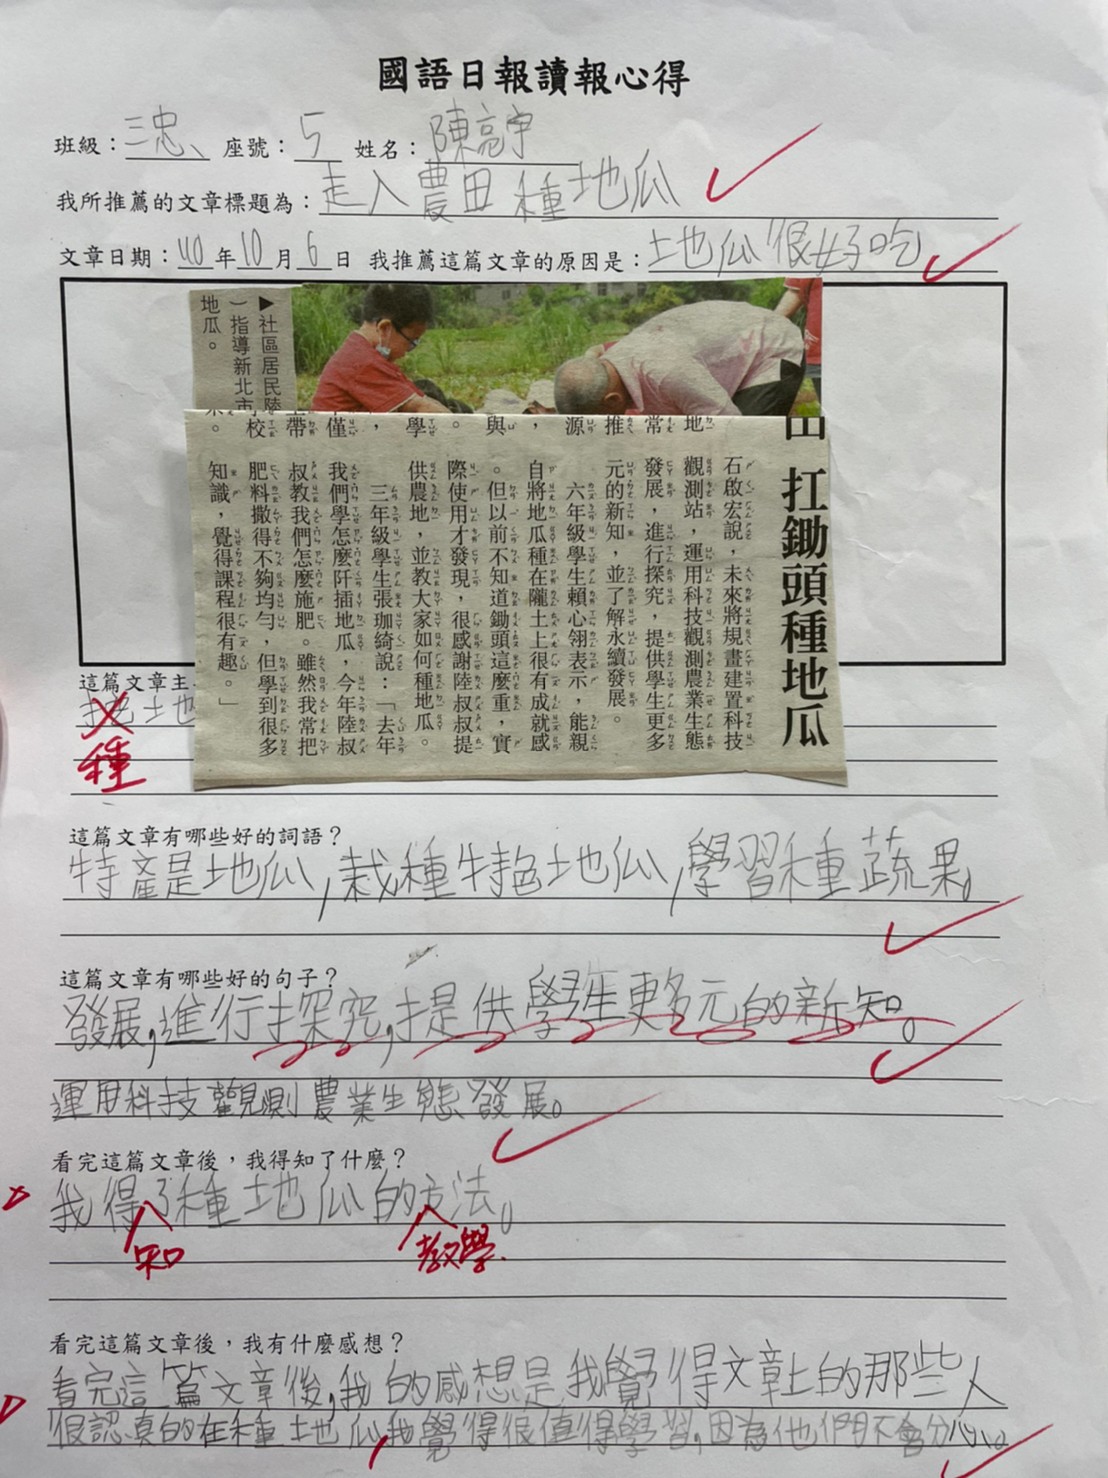 國語日報讀報心得
班級：三忠、 座號：5 姓名：陳高宇
我所推薦的文章標題為：走入農田種地瓜
文章日期：110年10月6日 我推薦這篇文章的原因是：土地瓜很好吃
▶社區居民陸
一指導新北市
地瓜。
扛鋤頭種地瓜
石啟宏說，未來將規畫建置科技
觀測站，運用科技觀測農業生態
發展，進行探究，提供學生更多
元的新知，並了解永續發展。
六年級學生賴心翎表示，能親
自將地瓜種在隴土上很有成就感
。但以前不知道鋤頭這麼重，實
際使用才發現，很感謝陸叔叔提
供農地，並教大家如何種地瓜。
三年級學生張珈綺說：「去年
我們學怎麼阡插地瓜，今年陸叔
叔教我們怎麼施肥。雖然我常把
肥料撒得不夠均勻，但學到很多
知識，覺得課程很有趣。」
地
常
推
源
，
與
。
學
，
僅
帶
校
這篇文章主
土地
種
這篇文章有哪些好的詞語？
特產是地瓜,栽種特色地瓜,學習種蔬果。
這篇文章有哪些好的句子？
發展,進行探究,提供學生更多元的新知。
運用科技觀測農業生態發展。
看完這篇文章後，我得知了什麼？
我得了種地瓜的方法。
知 教學
看完這篇文章後，我有什麼感想？
看完這篇文章後,我的感想是我覺得文章上的那些人
很認真的在種地瓜,我覺得很值得學習,因為他們不會分心。